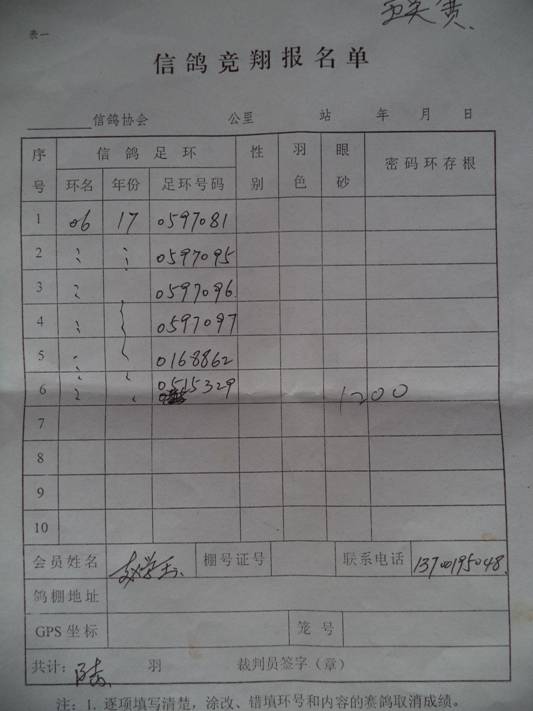 表一
信鸽竞翔报名单
信鸽协会 公里 站 年 月 日
序号 信鸽足环 性别 羽色 眼砂 密码环存根
环名 年份 足环号码
1 06 17 0597081
2 0597095
3 0597096
4 0597097
5 0168862
6 0515329 1200
7
8
9
10
会员姓名 赵学玉 棚号证号 联系电话 13700195048
鸽棚地址
GPS坐标 笼号
共计: 陆 羽 裁判员签字(章)
注:1. 逐项填写清楚,涂改、错填环号和内容的赛鸽取消成绩。